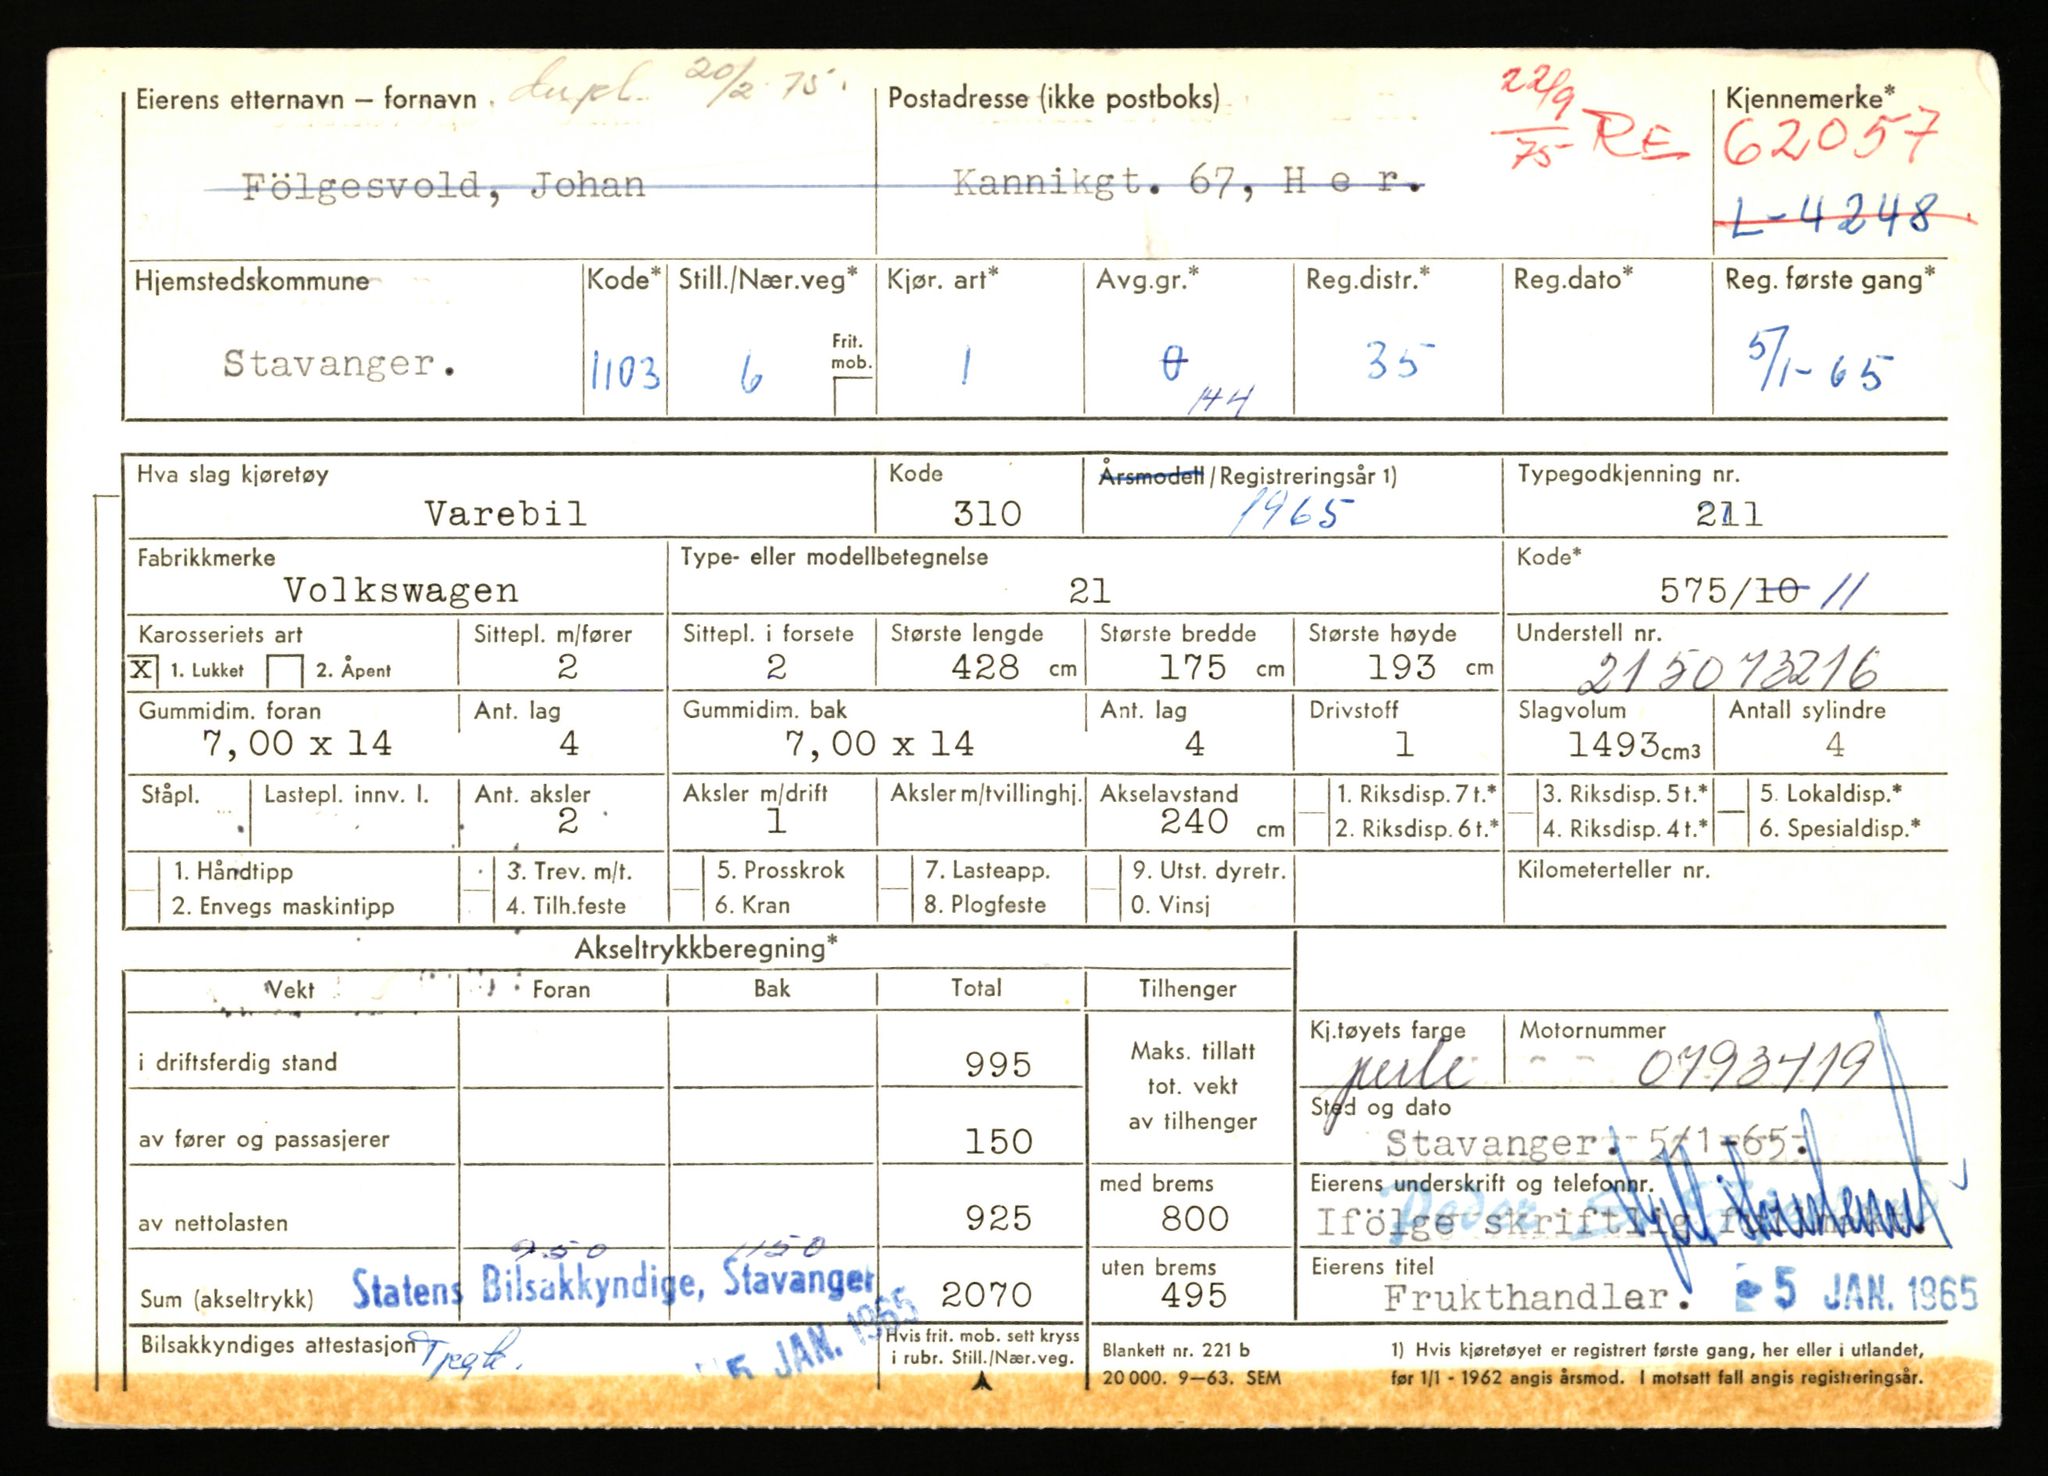 dupl. 20/2 75.
Eierens etternavn – fornavn
Fölgesvold, Johan
Postadresse (ikke postboks)
Kannikgt. 67, H e r.
22/9 75 RE
Kjennemerke*
62057
L-4248
Hjemstedskommune
Stavanger.
Kode*
1103
Still./Nær.veg*
6
Frit. mob.
Kjør. art*
1
Avg.gr.*
0
144
Reg.distr.*
35
Reg.dato*
Reg. første gang*
5/1-65
Hva slag kjøretøy
Varebil
Kode
310
Årsmodell/Registreringsår 1)
1965
Typegodkjenning nr.
211
Fabrikkmerke
Volkswagen
Type- eller modellbetegnelse
21
Kode*
575/10 11
Karosseriets art
X 1. Lukket 2. Åpent
Sittepl. m/fører
2
Sittepl. i forsete
2
Største lengde
428 cm
Største bredde
175 cm
Største høyde
193 cm
Understell nr.
215073216
Gummidim. foran
7,00 x 14
Ant. lag
4
Gummidim. bak
7,00 x 14
Ant. lag
4
Drivstoff
1
Slagvolum
1493 cm3
Antall sylindre
4
Ståpl.
Lastepl. innv. l.
Ant. aksler
2
Aksler m/drift
1
Aksler m/tvillinghj.
Akselavstand
240 cm
1. Riksdisp. 7 t.*
2. Riksdisp. 6 t.*
3. Riksdisp. 5 t.*
4. Riksdisp. 4 t.*
5. Lokaldisp.*
6. Spesialdisp.*
1. Håndtipp
2. Envegs maskintipp
3. Trev. m/t.
4. Tilh.feste
5. Prosskrok
6. Kran
7. Lasteapp.
8. Plogfeste
9. Utst. dyretr.
0. Vinsj
Kilometerteller nr.
Akseltrykkberegning*
Vekt Foran Bak Total Tilhenger
i driftsferdig stand 995
av fører og passasjerer 150
av nettolasten 925
Sum (akseltrykk) 950 1150 2070
Maks. tillatt
tot. vekt
av tilhenger
med brems
800
uten brems
495
Kj.tøyets farge
perle
Motornummer
0793419
Sted og dato
Stavanger. 5/1-65.
Eierens underskrift og telefonnr.
Ifölge skriftlig fullmakt
Eierens titel
Frukthandler.
-5 JAN. 1965
Statens Bilsakkyndige, Stavanger
5 JAN. 1965
Bilsakkyndiges attestasjon
Hvis frit. mob. sett kryss
i rubr. Still./Nær.veg.
Blankett nr. 221 b
20 000. 9–63. SEM
1) Hvis kjøretøyet er registrert første gang, her eller i utlandet,
før 1/1 - 1962 angis årsmod. I motsatt fall angis registreringsår.